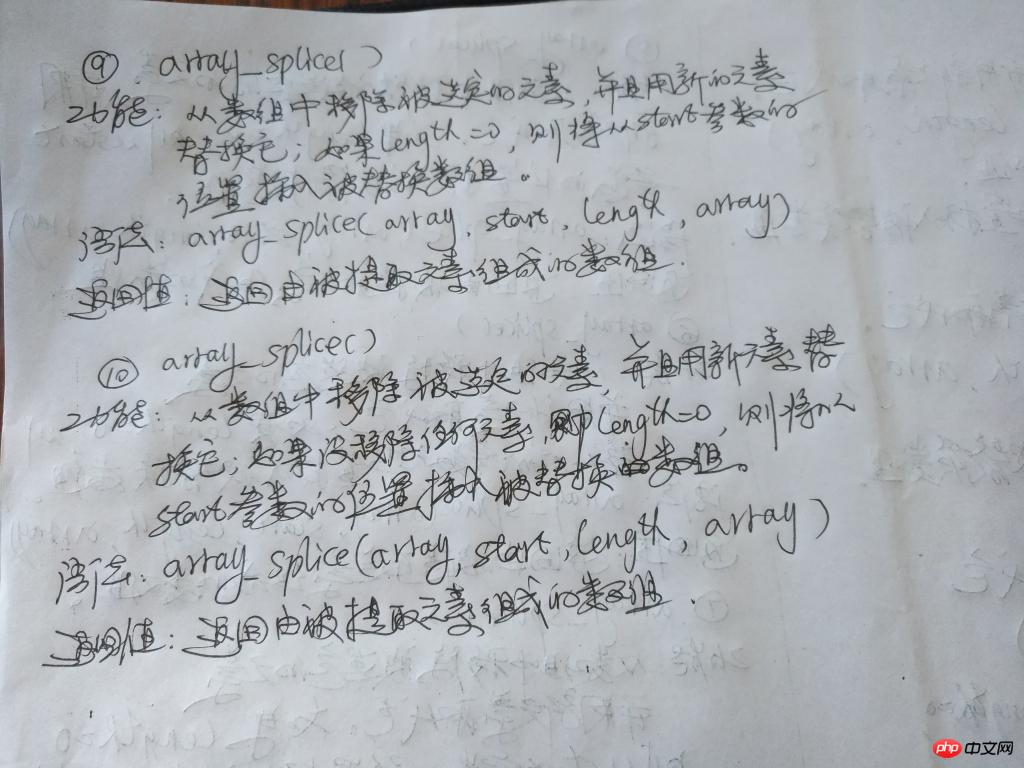 ⑨ array_splice()
功能: 从数组中移除被选定的元素,并且用新的元素
替换它; 如果length=0, 则将从start参数的
位置插入被替换数组。
语法: array_splice(array, start, length, array)
返回值: 返回由被提取元素组成的数组.
⑩ array_splice()
功能: 从数组中移除被选定的元素, 并且用新元素替
换它; 如果没移除任何元素, 即length=0, 则将从
start参数的位置插入被替换的数组。
语法: array_splice(array, start, length, array)
返回值: 返回由被提取元素组成的数组.
php 中文网